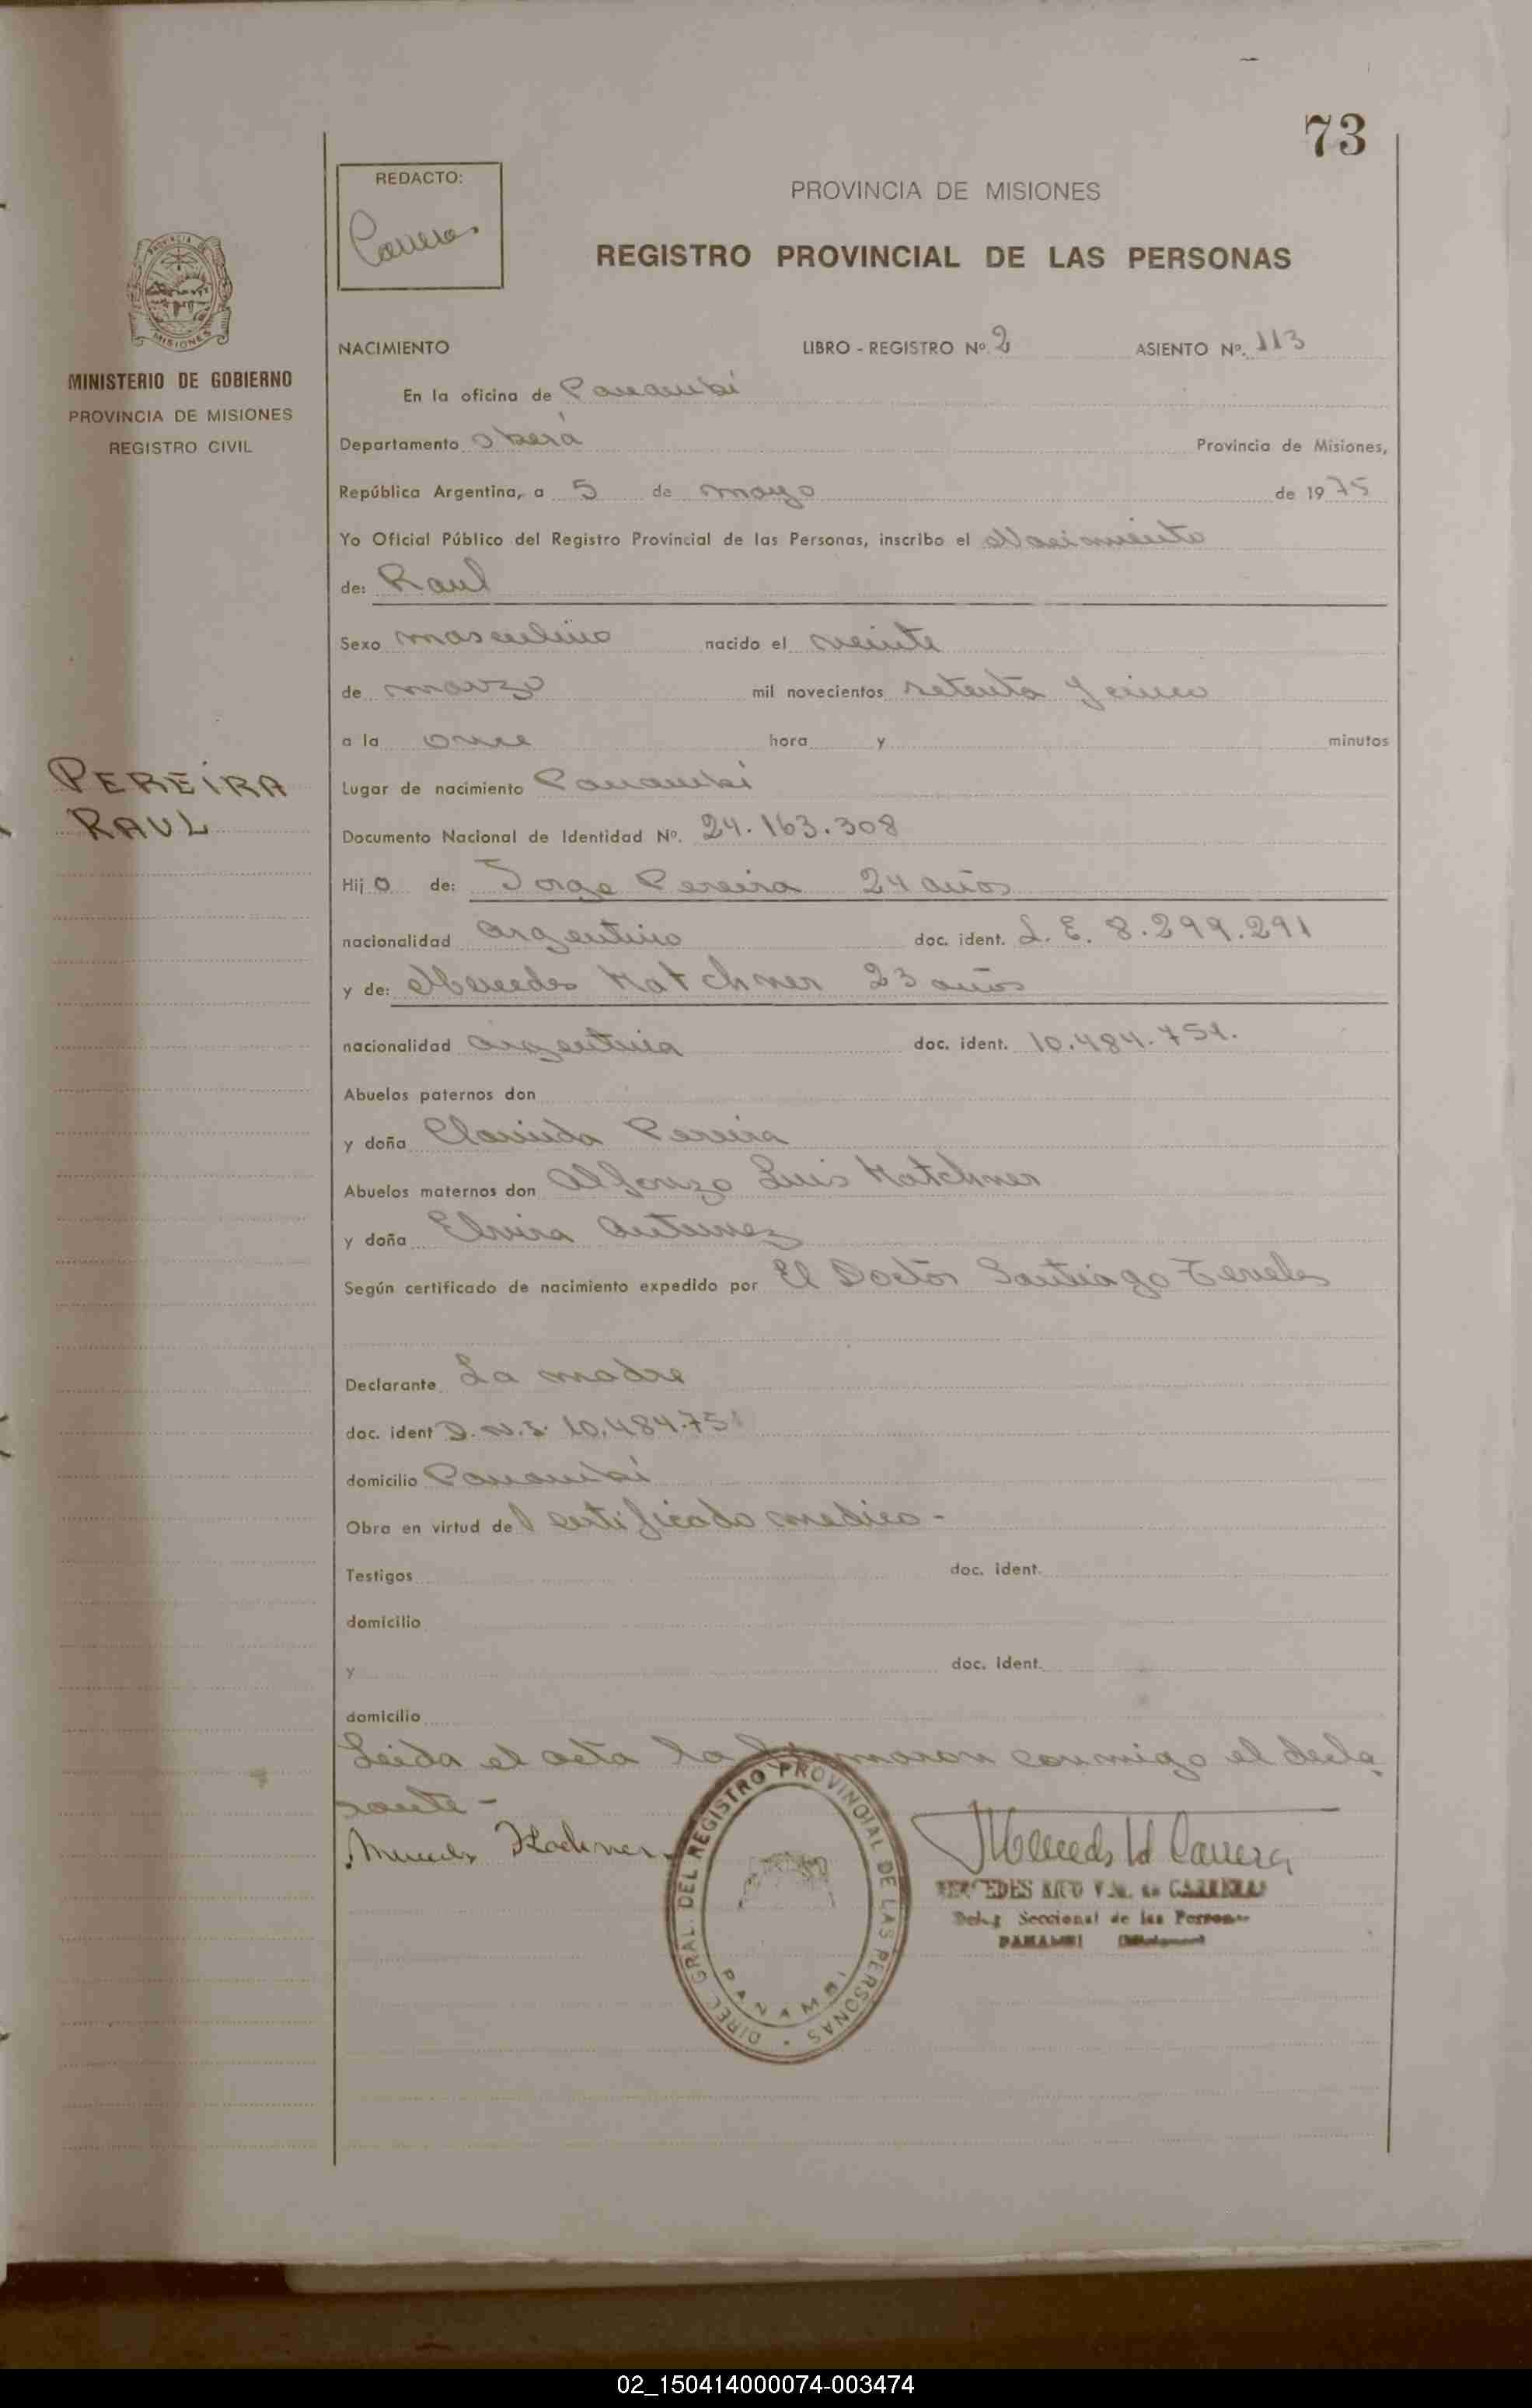 73
REDACTO:
Carrera
PROVINCIA DE MISIONES
REGISTRO PROVINCIAL DE LAS PERSONAS
MISIONES
MINISTERIO DE GOBIERNO
PROVINCIA DE MISIONES
REGISTRO CIVIL
NACIMIENTO LIBRO - REGISTRO Nº. 2 ASIENTO Nº. 113
En la oficina de Panambí
Departamento Oberá Provincia de Misiones,
República Argentina, a 5 de mayo de 1975
Yo Oficial Público del Registro Provincial de las Personas, inscribo el Nacimiento
de: Raul
Sexo masculino nacido el veinte
de marzo mil novecientos setenta y cinco
a la once hora y minutos
PEREIRA
RAUL
Lugar de nacimiento Panambí
Documento Nacional de Identidad Nº. 24.163.308
Hijo de: Jorge Pereira 24 años
nacionalidad argentino doc. ident. L. E. 8.299.291
y de: Mercedes Hatchner 23 años
nacionalidad argentina doc. ident. 10.484.751.
Abuelos paternos don
y doña Clarinda Pereira
Abuelos maternos don Alfonzo Luis Hatchner
y doña Elvira Antunez
Según certificado de nacimiento expedido por El Doctor Santiago
Declarante La madre
doc. ident D.N.I. 10.484.751
domicilio Panambí
Obra en virtud del certificado medico -
Testigos doc. ident.
domicilio
y doc. ident.
domicilio
Leida el acta la firmaron conmigo el decla
rante -
DIREC. GRAL. DEL REGISTRO PROVINCIAL DE LAS PERSONAS
PANAMBI
Mercedes Carrera
MERCEDES
Deleg Seccional de las Personas
PANAMBI (Misiones)
02_150414000074-003474